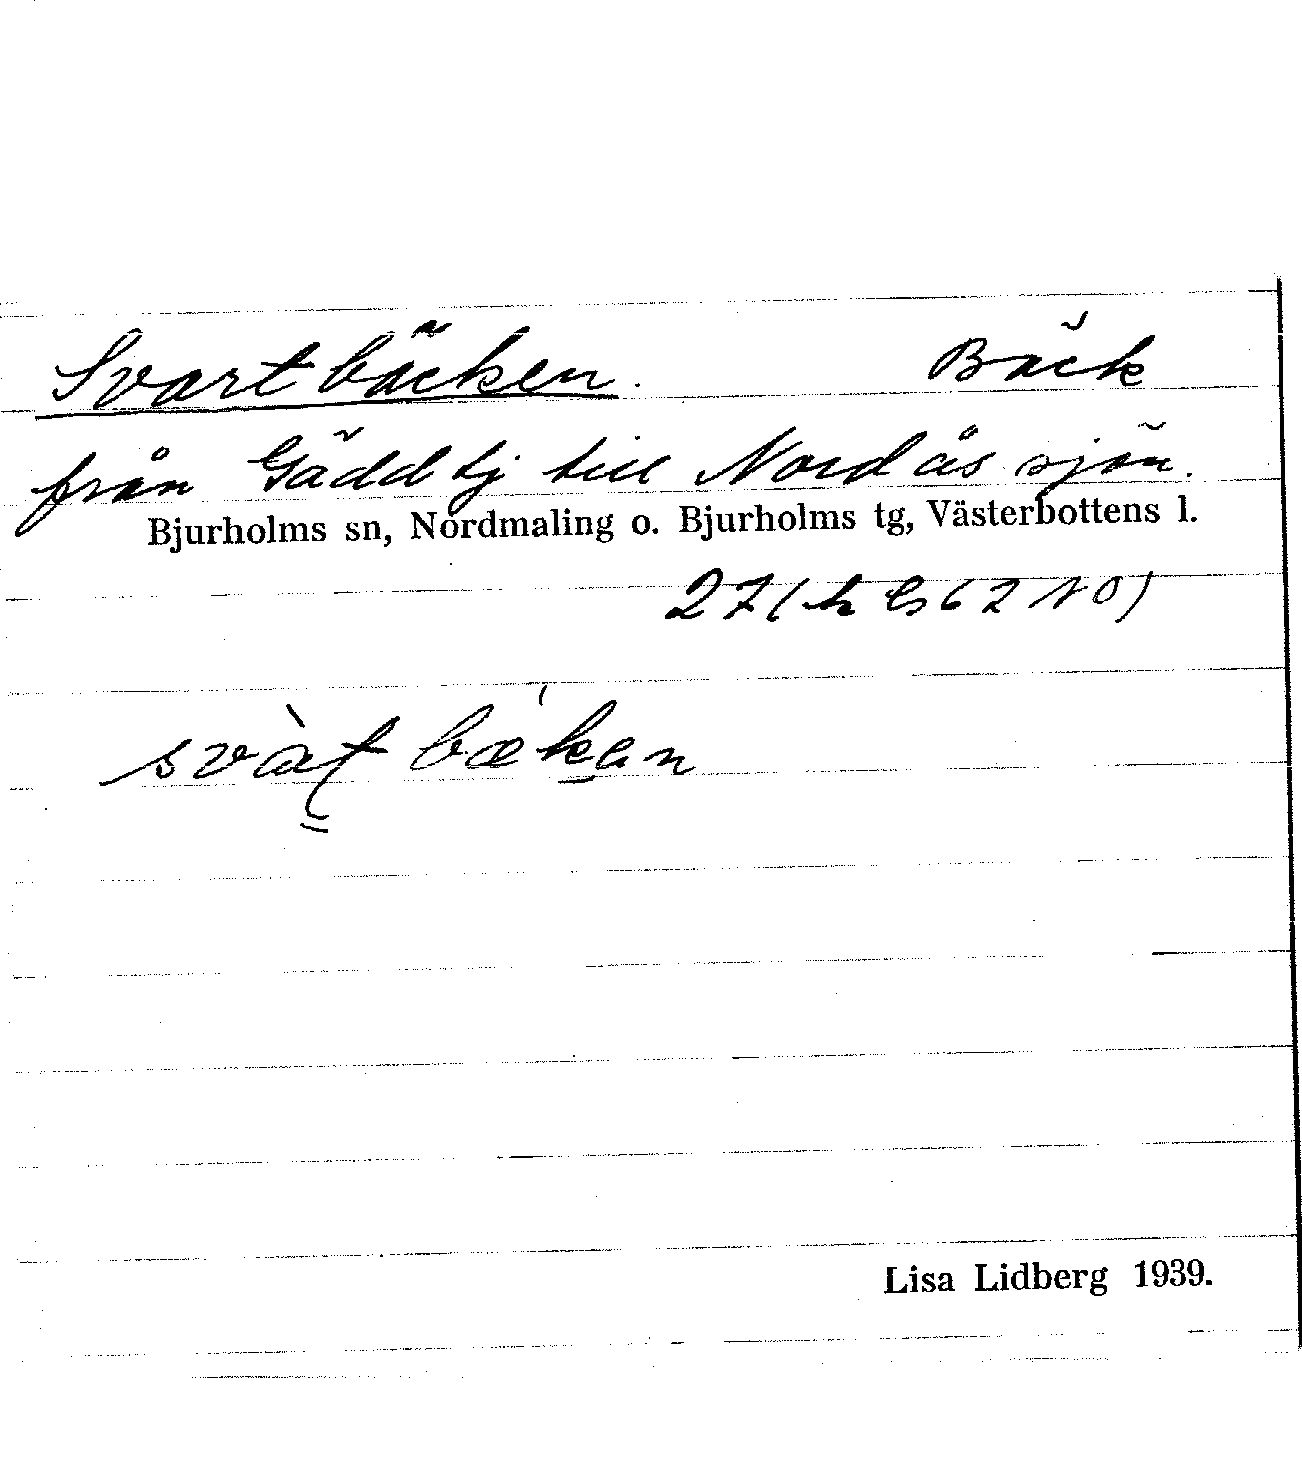 Svartbäcken. Bäck
från Gäddtj till Nordåssjön.
Bjurholms sn, Nordmaling o. Bjurholms tg, Västerbottens l.
27
svàt bækan
Lisa Lidberg 1939.